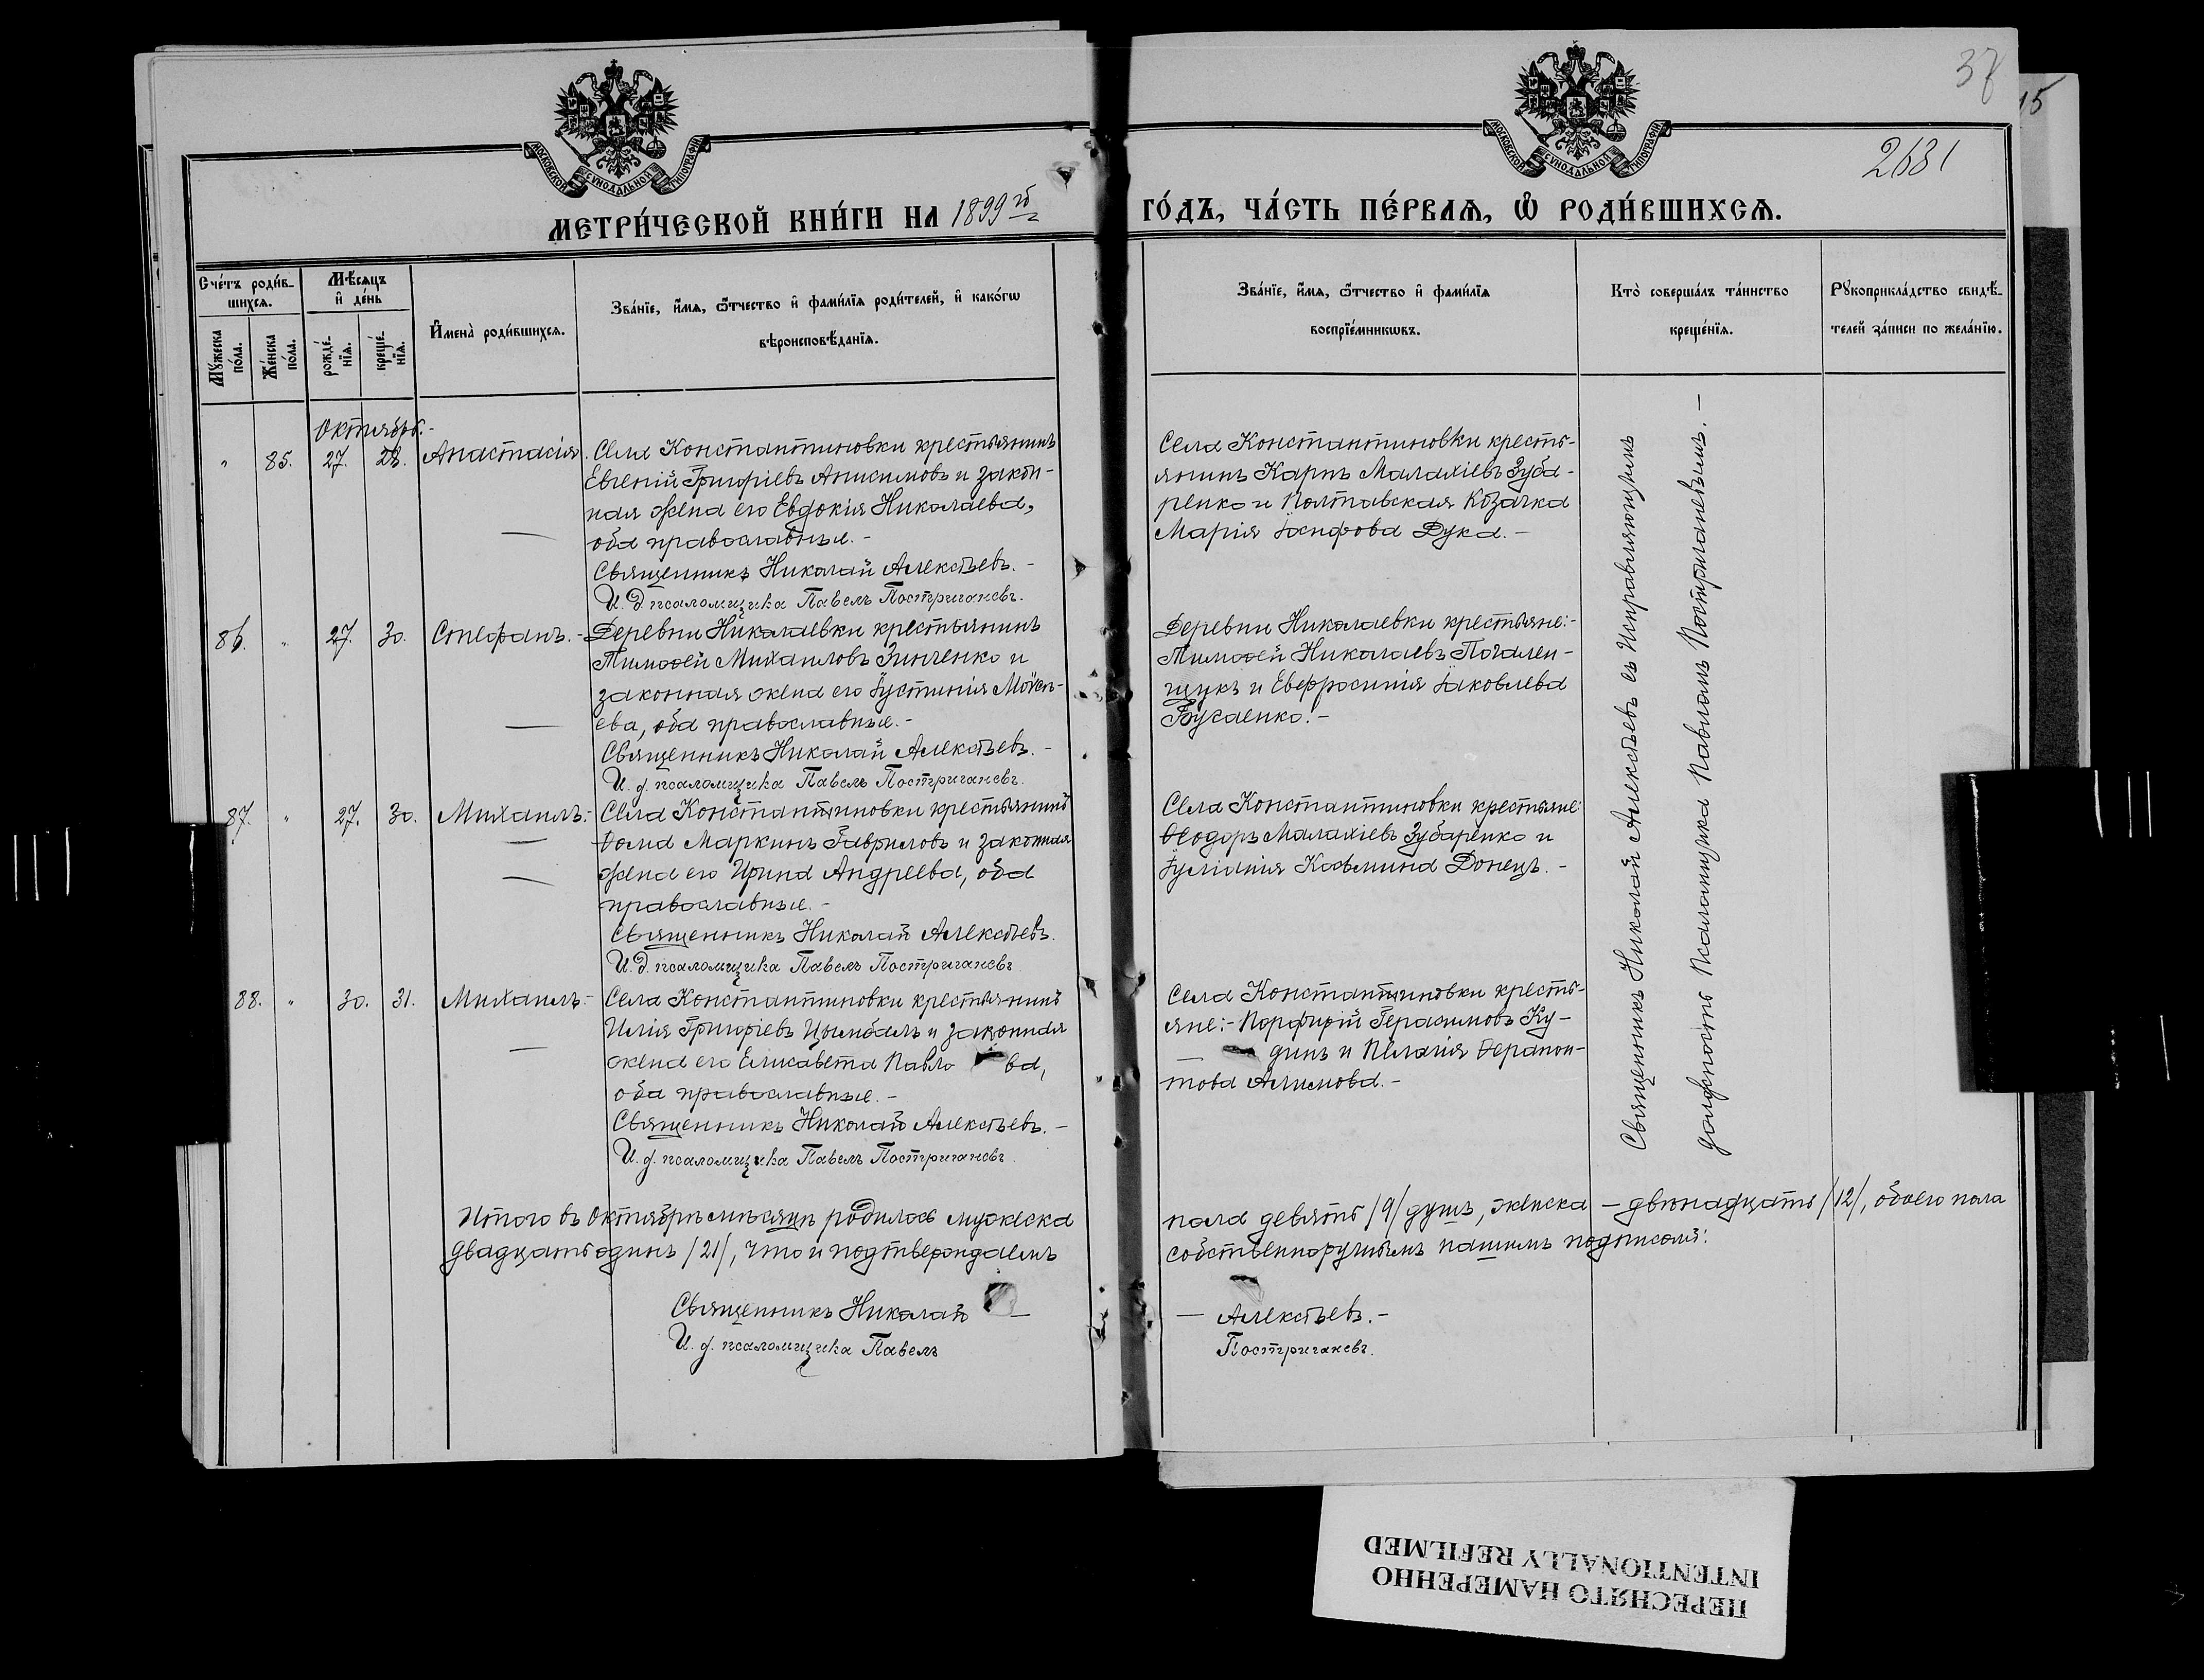 37
15
2631
МОСКОВСКОЙ СѴНОДАЛЬНОЙ ТИПОГРАФІИ
МОСКОВСКОЙ СѴНОДАЛЬНОЙ ТИПОГРАФІИ
МЕТРИ́ЧЕСКОЙ КНИ́ГИ НА 1899 го ГО́ДЪ, ЧА́СТЬ ПЕ́РВАѦ, Ѡ҆ РОДИ́ВШИХСѦ.
Сче́тъ роди́в-
шихсѧ.
Мꙋ́жеска по́ла.
Же́нска по́ла.
Мѣ́сѧцъ
и҆ де́нь
рожде́-
нїѧ.
креще́-
нїѧ.
И҆мена̀ роди́вшихсѧ.
Зва́нїе, и҆́мѧ, ѻ҆́тчество и҆ фамн́лїѧ роди́телей, и҆ како́гѡ
вѣроисповѣ́данїѧ.
Зва́нїе, и҆́мѧ, ѻ҆́тчество и҆ фами́лїѧ
воспрїе́мникѡвъ.
Кто̀ соверша́лъ та́инство
креще́нїѧ.
Рꙋкоприкла́дство свидѣ́-
телей за́писи по жела́нїю.
Октябрь.-
" 85. 27. 28. Анастасія. Села Константиновки крестьянинъ
Евгеній Григоріевъ Анисимовъ и закон-
ная жена его Евдокія Николаева,
оба православные.-
Священникъ Николай Алексѣевъ.-
И. д. псаломщика Павелъ Постригачевъ.
Села Константиновки кресть-
янинъ Карпъ Малахіевъ Зуба-
ренко и Полтавская Козачка
Марія Іосифова Дука.-
86. " 27. 30. Стефанъ.- Деревни Николаевки крестьянинъ
Тимоѳей Михаиловъ Зинченко и
законная жена его Іустинія Моѵсе-
ева, оба православные.-
Священникъ Николай Алексѣевъ.-
И. д. псаломщика Павелъ Постригачевъ.
Деревни Николаевки крестьяне:-
Тимоѳей Николаевъ Почален-
щукъ и Евфросинія Іаковлева
Бугаенко.-
87. " 27. 30. Михаилъ.- Села Константиновки крестьянинъ
Ѳома Маркинъ Гавриловъ и законная
жена его Ирина Андреева, оба
православные.-
Священникъ Николай Алексѣевъ.
И. д. псаломщика Павелъ Постригачевъ
Села Константиновки крестьяне:
Ѳеодоръ Малахіевъ Зубаренко и
Іуліанія Косьмина Донецъ.-
88. " 30. 31. Михаилъ.- Села Константиновки крестьянинъ
Илія Григоріевъ Цымбалъ и законная
жена его Елисавета Павло ва,
оба православные.-
Священникъ Николай Алексѣевъ.-
И. д. псаломщика Павелъ Постригачевъ.
Села Константиновки кресть-
яне:- Порфирій Герасимовъ Ку-
динъ и Пелагія Ѳерапон-
това Алимова.-
Священникъ Николай Алексѣевъ съ Исправляющимъ
должность Псаломщика Павломъ Постригачевымъ.-
Итого въ Октябрѣ мѣсяцѣ родилось мужеска пола девять /9/ душъ, женска - двѣнадцать /12/, обоего пола
двадцать одинъ /21/, что и подтверждаемъ собственноручнымъ нашимъ подписомъ:
Священникъ Николай - - Алексѣевъ.-
И. д. псаломщика Павелъ Постригачевъ.
ПЕРЕСНЯТО НАМЕРЕННО
INTENTIONALLY REFILMED